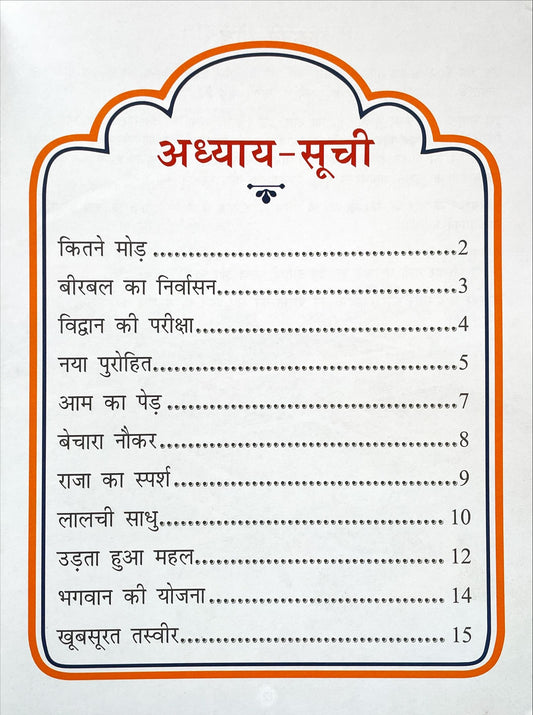 अध्याय-सूची
कितने मोड़ ........................................................2
बीरबल का निर्वासन............................................3
विद्वान की परीक्षा................................................4
नया पुरोहित........................................................5
आम का पेड़ .....................................................7
बेचारा नौकर......................................................8
राजा का स्पर्श....................................................9
लालची साधु.................................................... 10
उड़ता हुआ महल.............................................. 12
भगवान की योजना............................................ 14
खूबसूरत तस्वीर................................................ 15